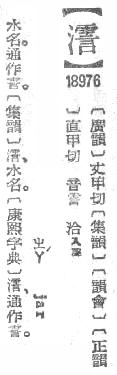 18976
〔廣韻〕丈甲切〔集韻〕〔韻會〕〔正韻
〕直甲切 音霅 洽入聲
ㄓㄚˊ jar
水名。通作霅。〔集韻〕、水名。〔康熙字典〕、通作霅。